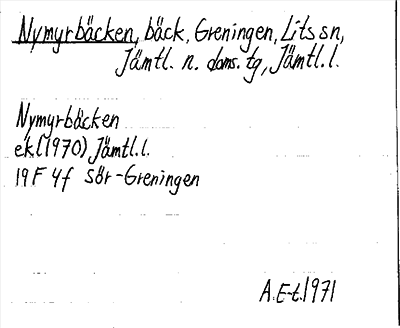 Nymyrbäcken, bäck, Greningen, Lits sn,
Jämtl. n. doms. tg, Jämtl. l.
Nymyrbäcken
ek. (1970) Jämtl. l.
19F 4f Sör-Greningen
A. E-t. 1971